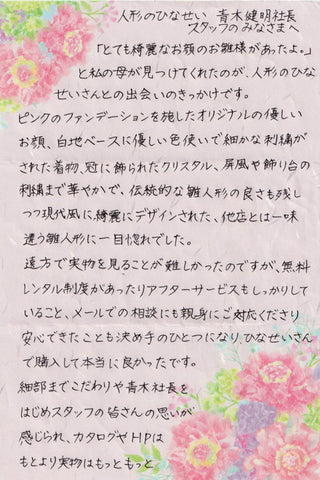 人形のひなせい 青木健明社長
スタッフのみなさまへ
「とても綺麗なお顔のお雛様があったよ。」
と私の母が見つけてくれたのが、人形のひな
せいさんとの出会いのきっかけです。
ピンクのファンデーションを施したオリジナルの優しい
お顔、白地ベースに優しい色使いで細かな刺繍が
された着物、冠に飾られたクリスタル、屏風や飾り台の
刺繍まで華やかで、伝統的な雛人形の良さも残し
つつ現代風に綺麗にデザインされた、他店とは一味
違う雛人形に一目惚れでした。
遠方で実物を見ることが難しかったのですが、無料
レンタル制度がありアフターサービスもしっかりして
いること、メールでの相談にも親身にご対応くださり
安心できたことも決め手のひとつになり、ひなせいさん
で購入して本当に良かったです。
細部までこだわりや青木社長を
はじめスタッフの皆さんの思いが
感じられ、カタログやHPは
もとより実物はもっともっと